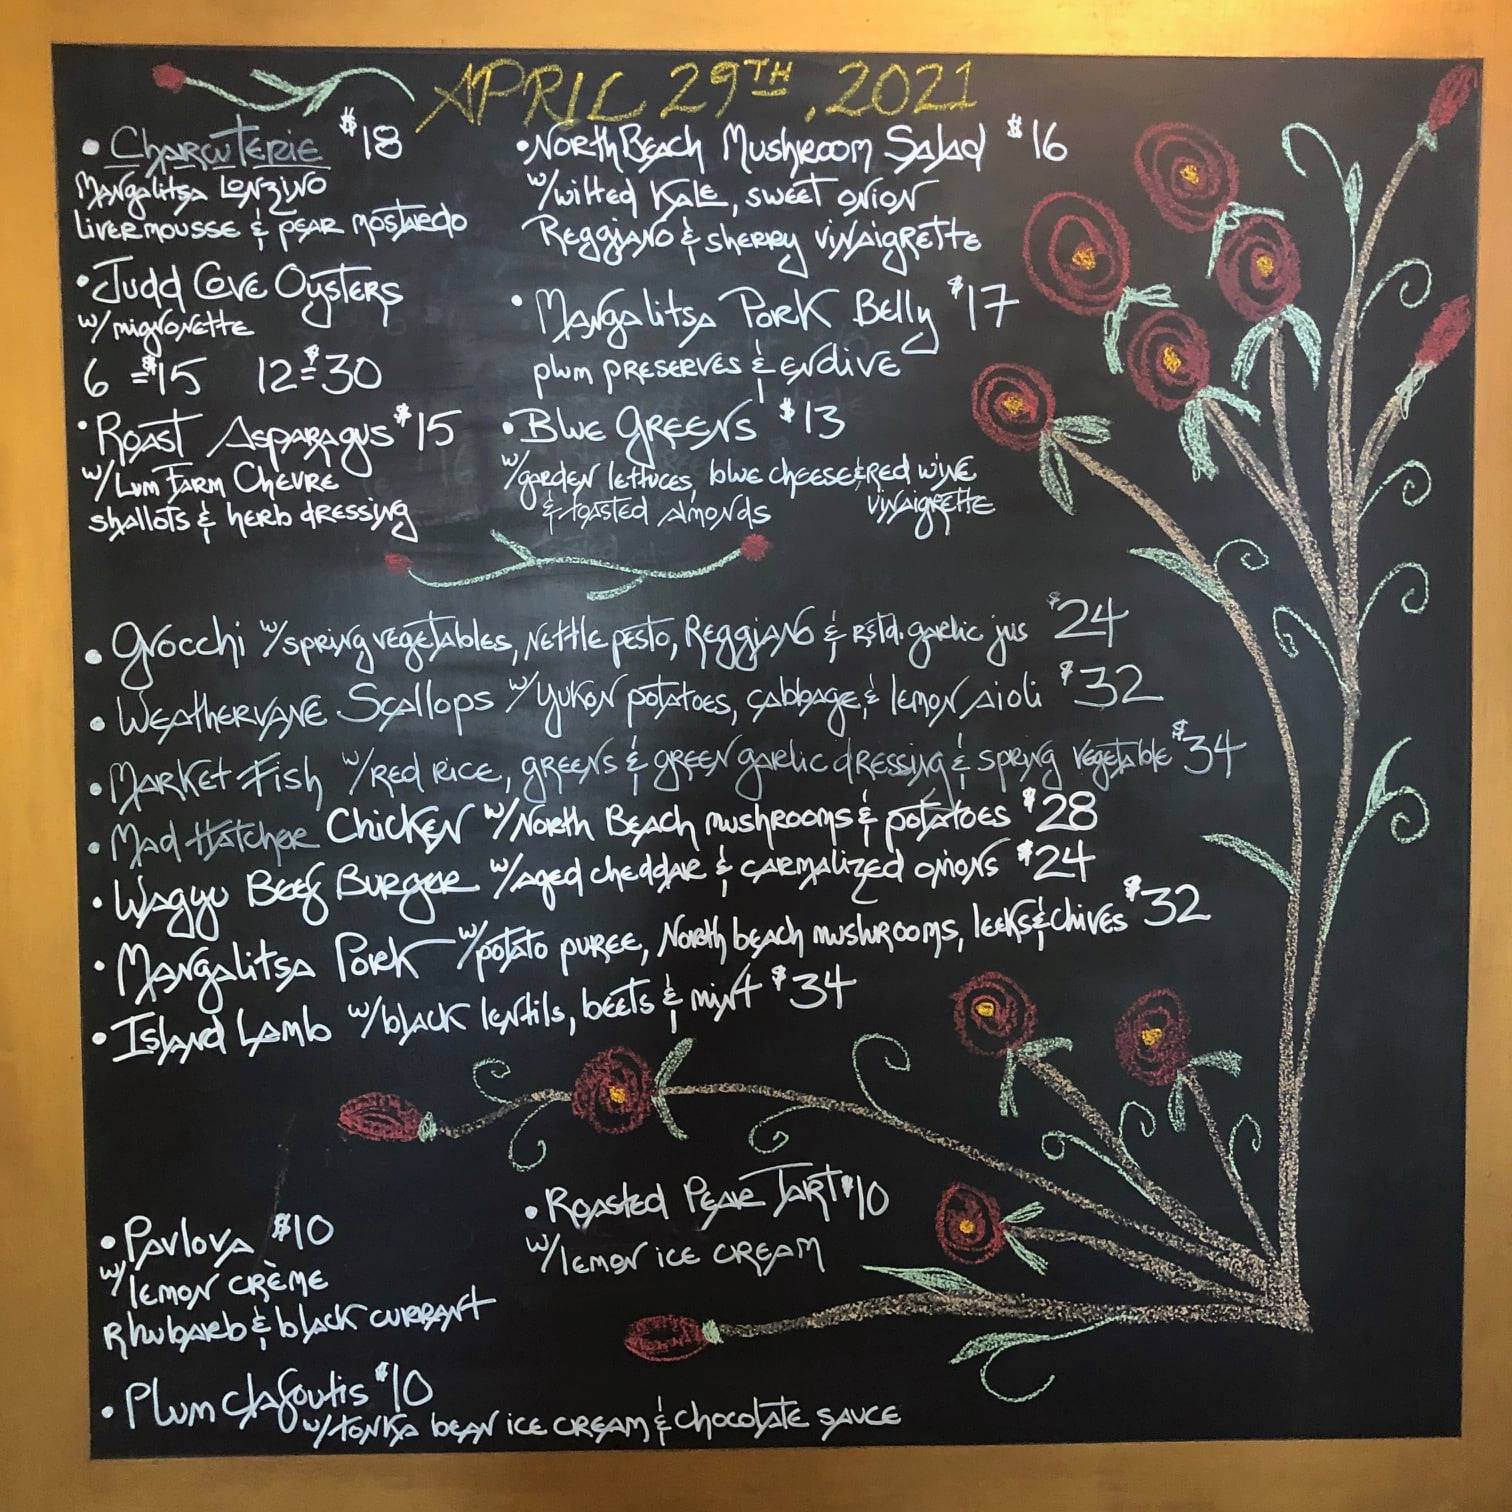 APRIL 29TH, 2021
• Charcuterie $18
Mangalitsa Lonzino
Livermousse & pear mostardo
• Judd Cove Oysters
w/ mignonette
6 = $15 12 = $30
• Roast Asparagus $15
w/ Lum Farm Chevre
shallots & herb dressing
• North Beach Mushroom Salad $16
w/ wilted Kale, sweet onion
Reggiano & sherry vinaigrette
• Mangalitsa Pork Belly $17
plum preserves & endive
• Blue Greens $13
w/ garden lettuces, blue cheese & red wine
vinaigrette
& toasted almonds
• Gnocchi w/ spring vegetables, nettle pesto, Reggiano & rstd. garlic jus $24
• Weathervane Scallops w/ yukon potatoes, cabbage, & lemon aioli $32
• Market Fish w/ red rice, greens & green garlic dressing & spring vegetable $34
• Mad Hatcher Chicken w/ North Beach mushrooms & potatoes $28
• Wagyu Beef Burger w/ aged cheddar & carmalized onions $24
• Mangalitsa Pork w/ potato puree, North beach mushrooms, leeks & chives $32
• Island Lamb w/ black lentils, beets & mint $34
• Pavlova $10
w/ lemon crème
Rhubarb & black currant
• Roasted Pear Tart $10
w/ lemon ice cream
• Plum Clafoutis $10
w/ tonka bean ice cream & chocolate sauce